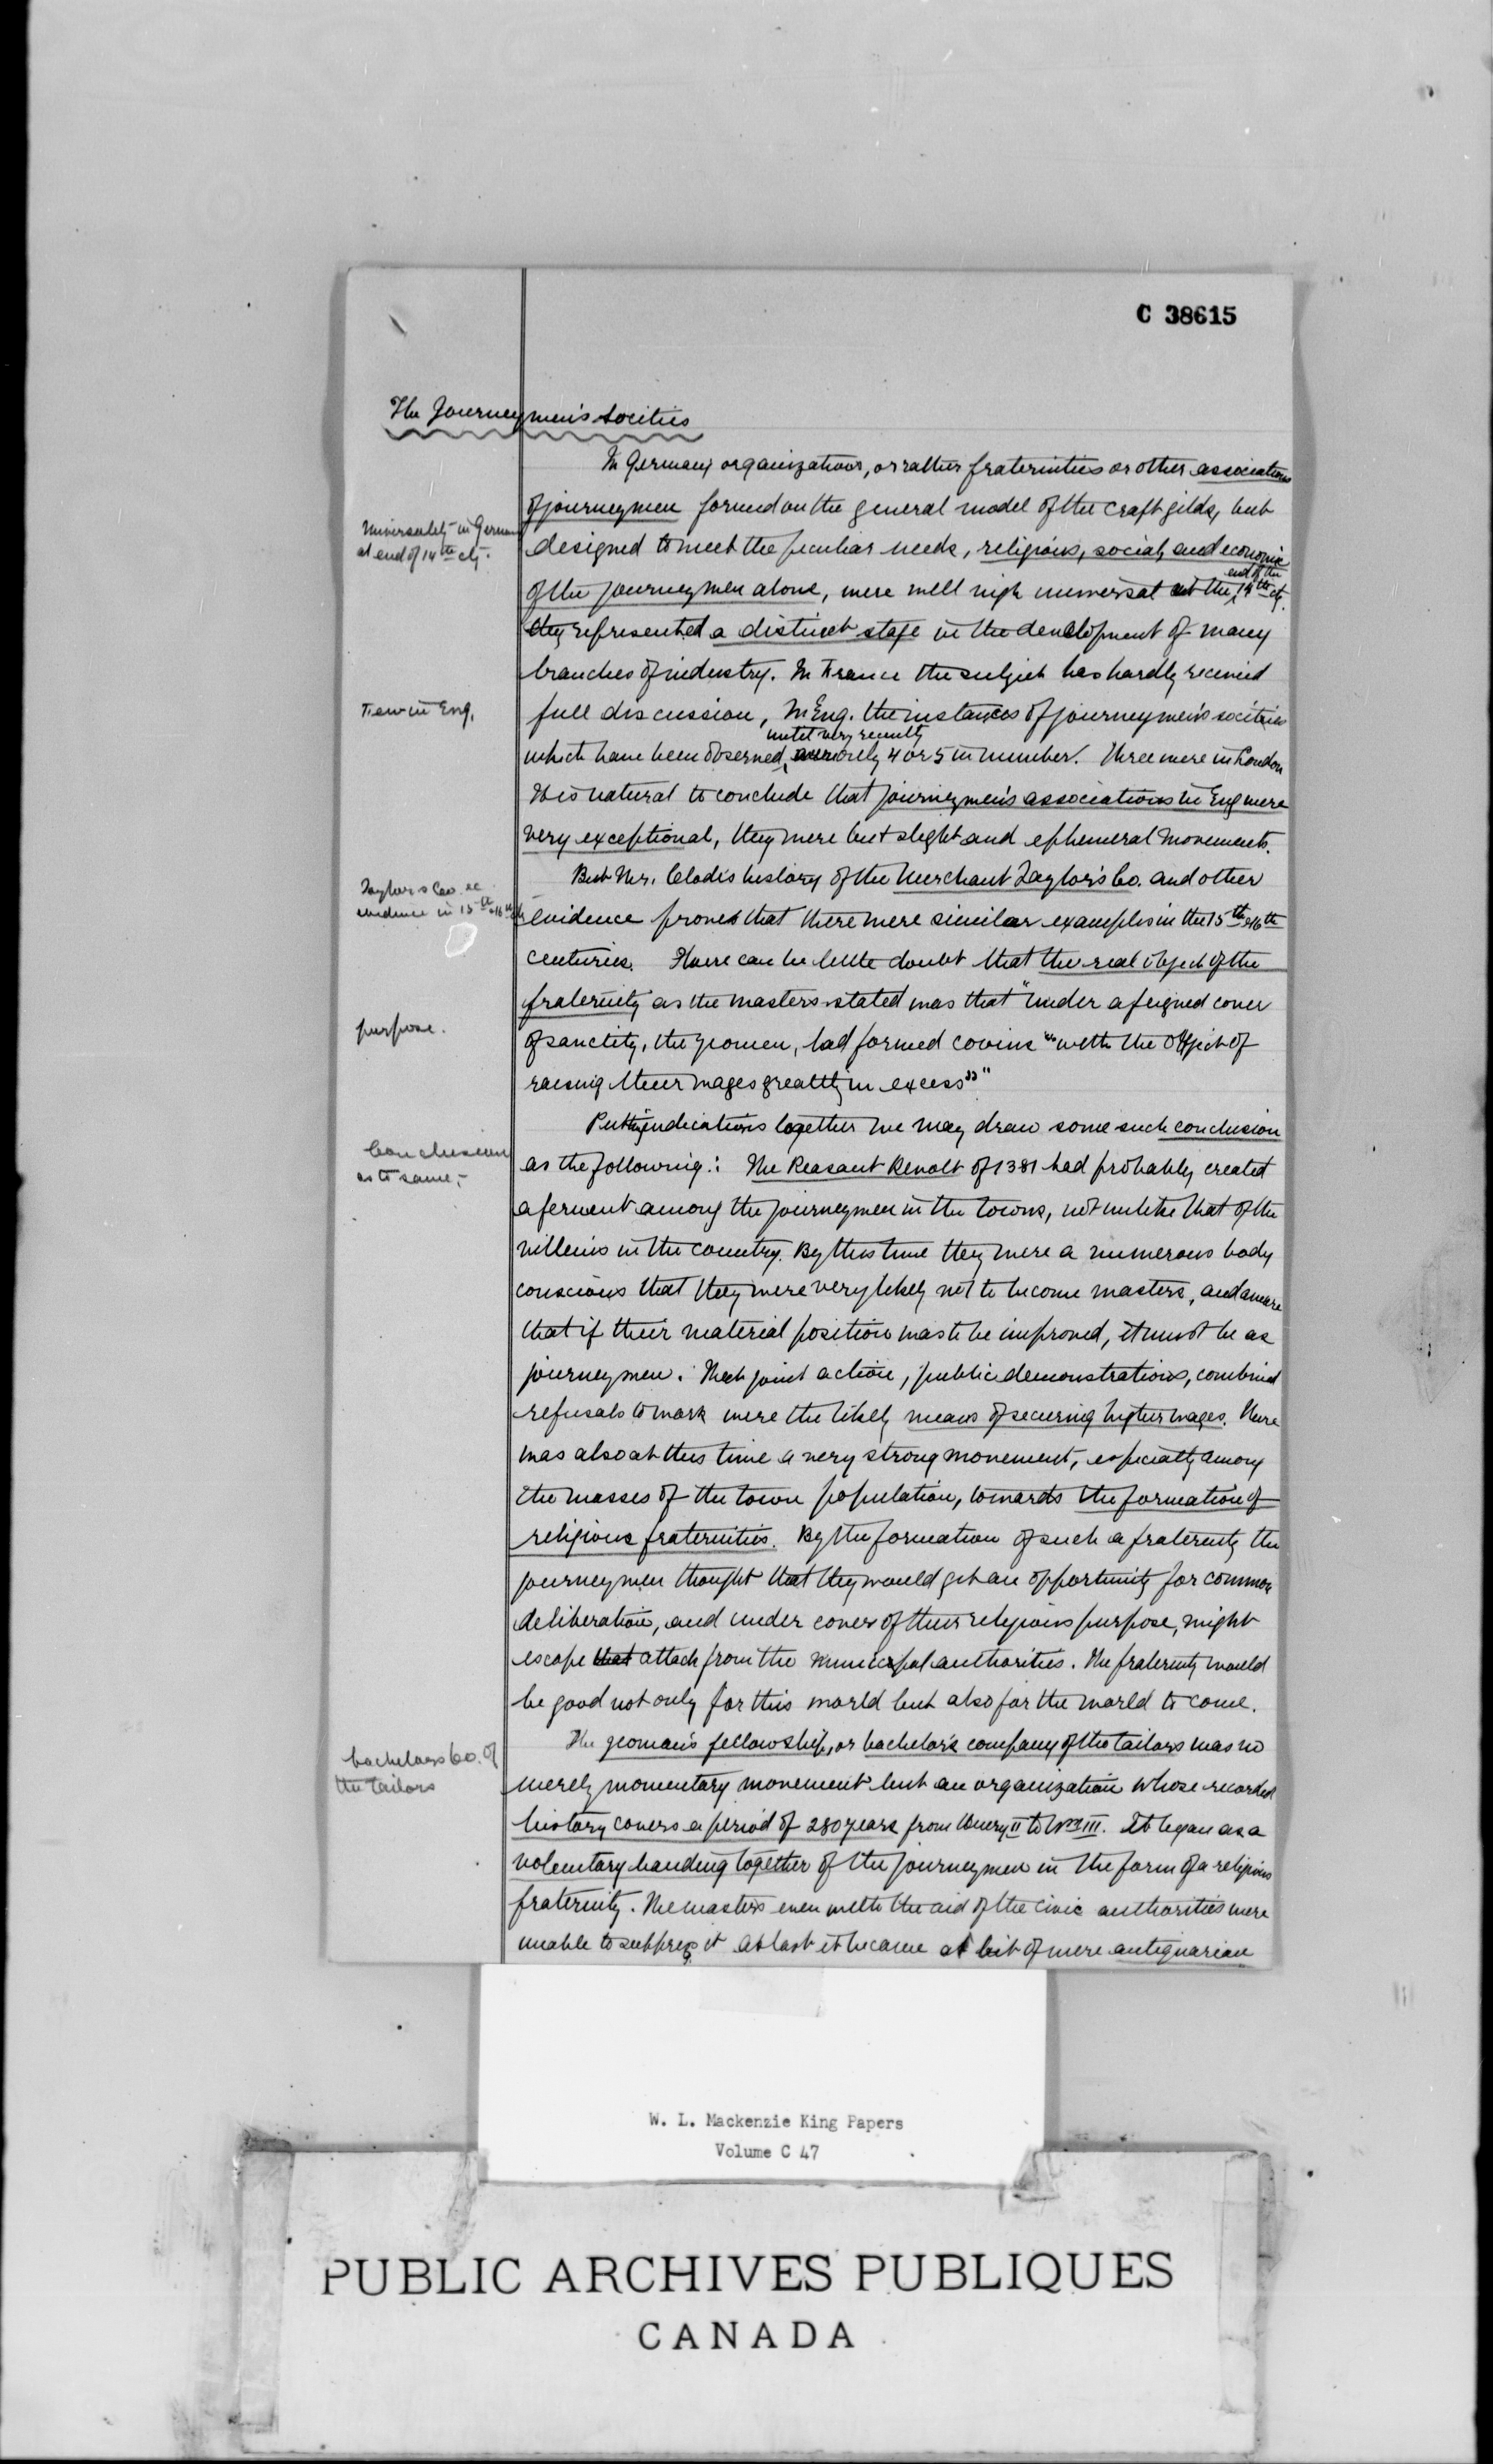 C 38615
The Journeymen's Socities
In Germany organizations, or rather fraternities or other associations
of journeymen formed on the general model of the craft gilds, but
Universality in German
at end of 14th cty.
designed to meet the peculiar needs, religious, social, and economic
of the journeymen alone, were well nigh universal at the end of the 14th cty.
they represented a distinct stage in the development of many
branches of industry. In France the subject has hardly received
Few in Eng.
full discussion, In Eng. the instances of journeymen's societies
which have been observed until very recently were only 4 or 5 in number. Three were in London
It is natural to conclude that journeymen's associations in Eng were
very exceptional, they were but slight and ephemeral movements.
Taylors Co.
evidence in 15th & 16th
But Mr. Clode's history of the Merchant Taylor's Co. and other
evidence proves that there were similar examples in the 15th & 16th
centuries. There can be little doubt that the real object of the
fraternity as the masters stated was that "under a feigned cover
purpose.
of sanctity, the yeomen, had formed covins "with the object of
raising their wages greatly in excess""
Putting indications together we may draw some such conclusion
Conclusion
as to same,-
as the following: The Peasant Revolt of 1381 had probably created
a ferment among the journeymen in the towns, not unlike that of the
villeins in the country. By this time they were a numerous body
conscious that they were very likely not to become masters, and aware
that if their material position was to be improved, it must be as
journeymen. joint action, public demonstrations, combined
refusals to work were the likely means of securing higher wages. There
was also at this time a very strong movement, especially among
the masses of the town population, towards the formation of
religious fraternities. By the formation of such a fraternity the
journeymen thought that they would get an opportunity for common
deliberation, and under cover of their religious purpose, might
escape that attack from the municipal authorities. The fraternity would
be good not only for this world but also for the world to come.
bachelors Co. of
the tailors
The yeoman's fellowship, or bachelor's company of the tailors was no
merely momentary movement but an organization whose recorded
history covers a period of 280 years from Henry II to Wm III. It began as a
voluntary banding together of the journeymen in the form of a religious
fraternity. The masters even with the aid of the civic authorities were
unable to suppress it at last it became a bit of mere antiquarian
W. L. Mackenzie King Papers
Volume C 47
PUBLIC ARCHIVES PUBLIQUES
CANADA